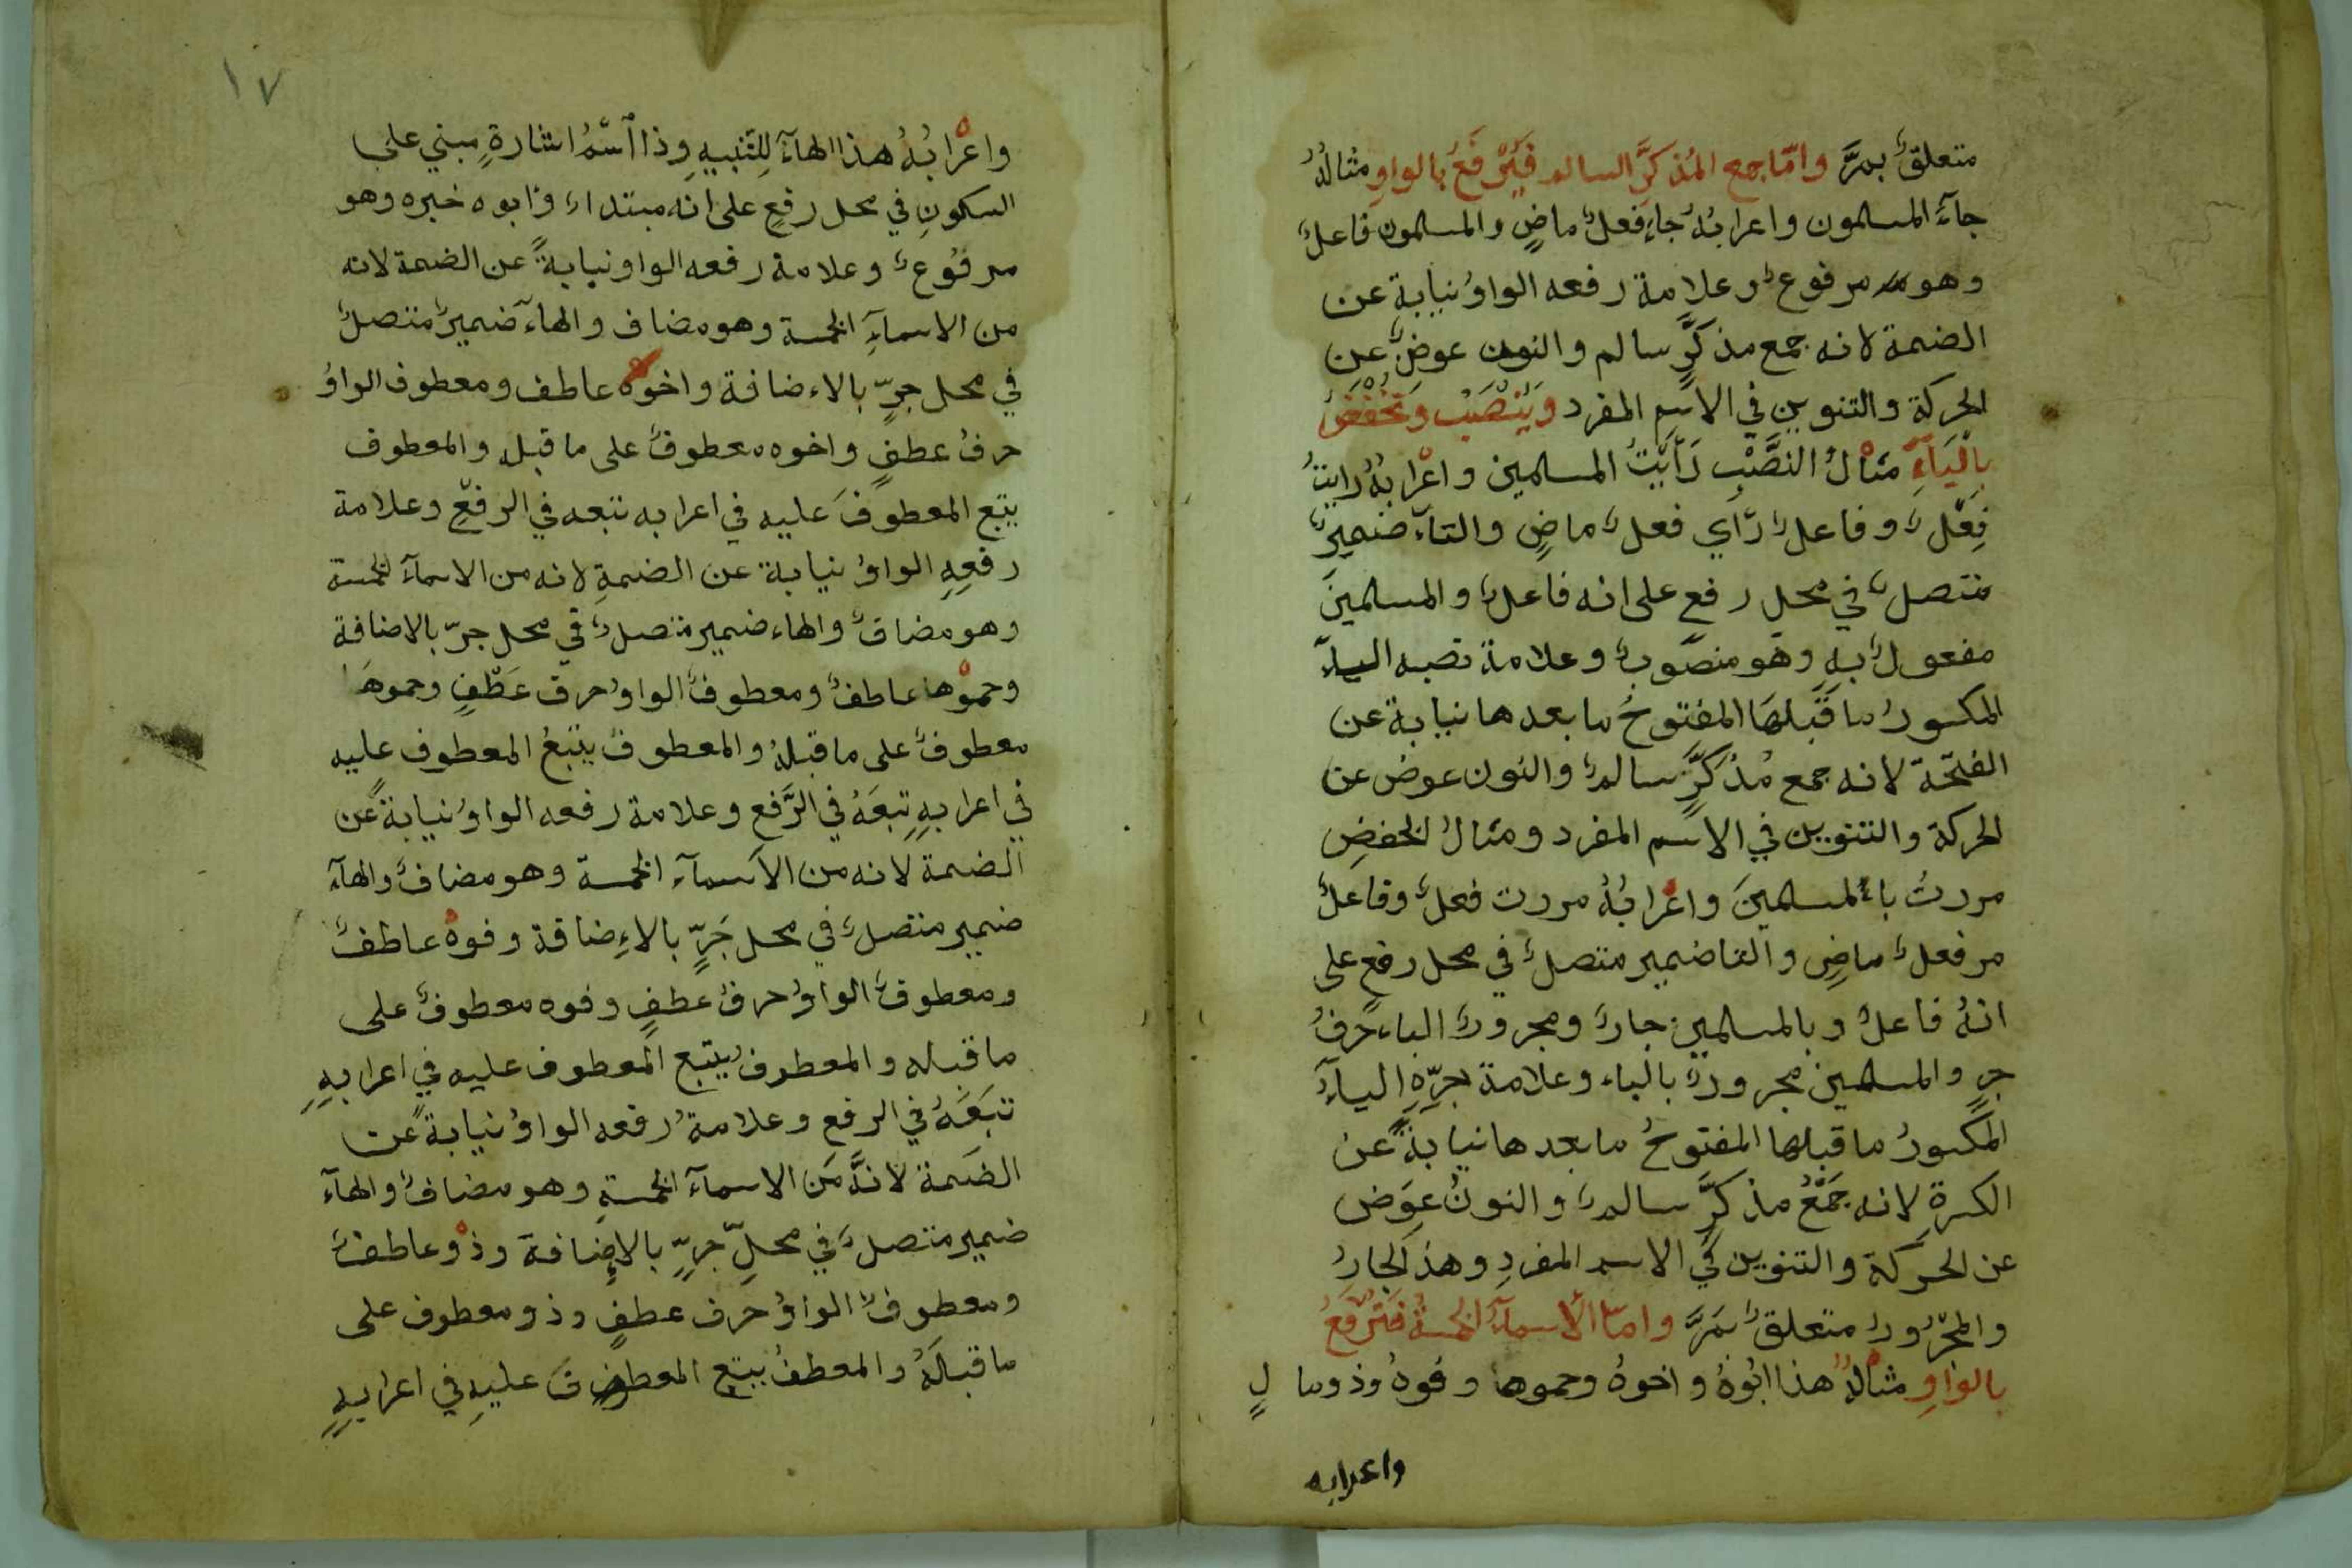 متعلقٌ بمرَّ وامّا جمع المُذكرَّ السالم فَيُرْفَعُ بالواوِ مثالُهُ
جآءَ المسلمون واعرابُهُ جاءِ فعلٌ ماضٍ والمسلمون فاعلٌ
وهو مرفوعٌ وعلامة رفعه الواوُ نيابة عن
الضمة لانه جمع مذكرَّ سالم والنون عوضٌ عن
الحركة والتنوين في الاسِم المفرد ويُنْصَبُ وَيُخْفَضُ
بِالْيَآءِ مثالُ النَصَّبِ رَأَيْتُ المسلمين واعْرابُهُ رايتُ
فِعْلٌ وفاعلٌ رَأي فعلٌ ماضٍ والتآء ضميرٌ
متصلٌ في محل رفع على انه فاعلٌ والمسلمينَ
مفعولٌ بهِ وهو منصوبٌ وعلامة نصبه اليآء
المكسورُ ما قَبلهَا المفتوحُ ما بعدها نيابة عن
الفتحَة لانه جمع مُذكرَّ سالمٌ والنون عوض عن
الحركة والتنوين في الاسم المفرد ومثالُ الخفضِ
مررتُ بالمسلمينَ واعْرابُهُ مررت فعلٌ وفاعلٌ
مر فعلٌ ماضِ والتا ضمير متصلٌ في محل رفعٍ على
انهُ فاعلٌ وبالمسلمين جارٌ ومجرورٌ الباء حرفُ
جر والمسلمين مجرورٌ بالباء وعلامة جرّهِ اليآءُ
المكسورُ ما قبلها المفتوحُ ما بعدها نيابةً عن
الكسرةِ لانه جَمْعُ مذكرَّ سالمٌ والنونُ عِوَض
عن الحركة والتنوين في الاسم المفردِ وهذ الجارُ
والمجْرُورُ متعلقٌ بمَرَّ وامّا الأسمآءُ الخمسةُ فَتُرْفَعُ
بالواوِ مثالُهُ هذا ابُوهُ واخوهُ وحموها وفوهُ وذو مالٍ
واعرابه
١٧
واعْرابُهُ هذا الهآءُ لِلتَّنبيهِ وذا اسْمُ اشارةٍ مبني على
السكونِ في محل رفعٍ على انه مبتداء وابوه خبره وهو
مرفُوعٌ وعلامة رفعه الواو نيابةً عن الضمة لانه
من الاسمآءِ الخمسة وهو مضاف والهآء ضميرٌ متصلٌ
في محل جرٍّ بالاءضافة واخوه عاطف ومعطوف الواوُ
حرفُ عطفٍ واخوه معطوفٌ على ما قبله والمعطوف
يتبع المعطوفَ عليه في اعرابه تبعه في الرفعِ وعلامة
رفعِهِ الواوُ نيابة عن الضمةِ لانه من الاسمآء الخمسة
وهو مضافٌ والهاء ضمير متصلٌ في محل جرّ بالاضافة
وحموْها عاطفٌ ومعطوفٌ الواوُ حرف عَطْفٍ وحموهَا
معطوفٌ على ما قبلهُ والمعطوف يتبعُ المعطوف عليه
في اعرابهِ تبِعَهُ في الرَّفع وعلامة رفعه الواوُ نيابةً عن
الضمة لانه من الاسمآء الخمسة وهو مضافٌ والهآء
ضمير متصلٌ في محل جَرٍّ بالاءِضافة وفوهُ عاطفٌ
ومعطوفٌ الواوُ حرفُ عطفٍ وفوه معطوفٌ على
ما قبله والمعطوفُ يتبع المعطوف عليه في اعرابهِ
تبَعَهُ في الرفع وعلامةُ رفعه الواوُ نيابةً عن
الضَمة لانهَّ مَن الاسمآء الخمسةِ وهو مضافٌ والهآء
ضمير متصلٌ في محلِّ جرٍّ بالاِضافة وذوْ عاطفٌ
ومعطوفٌ الواوُ حَرف عطفٍ وذو معطوف على
ما قبلَهُ والمعطفُ يتبع المعطوف عليهِ في اعرابهِ